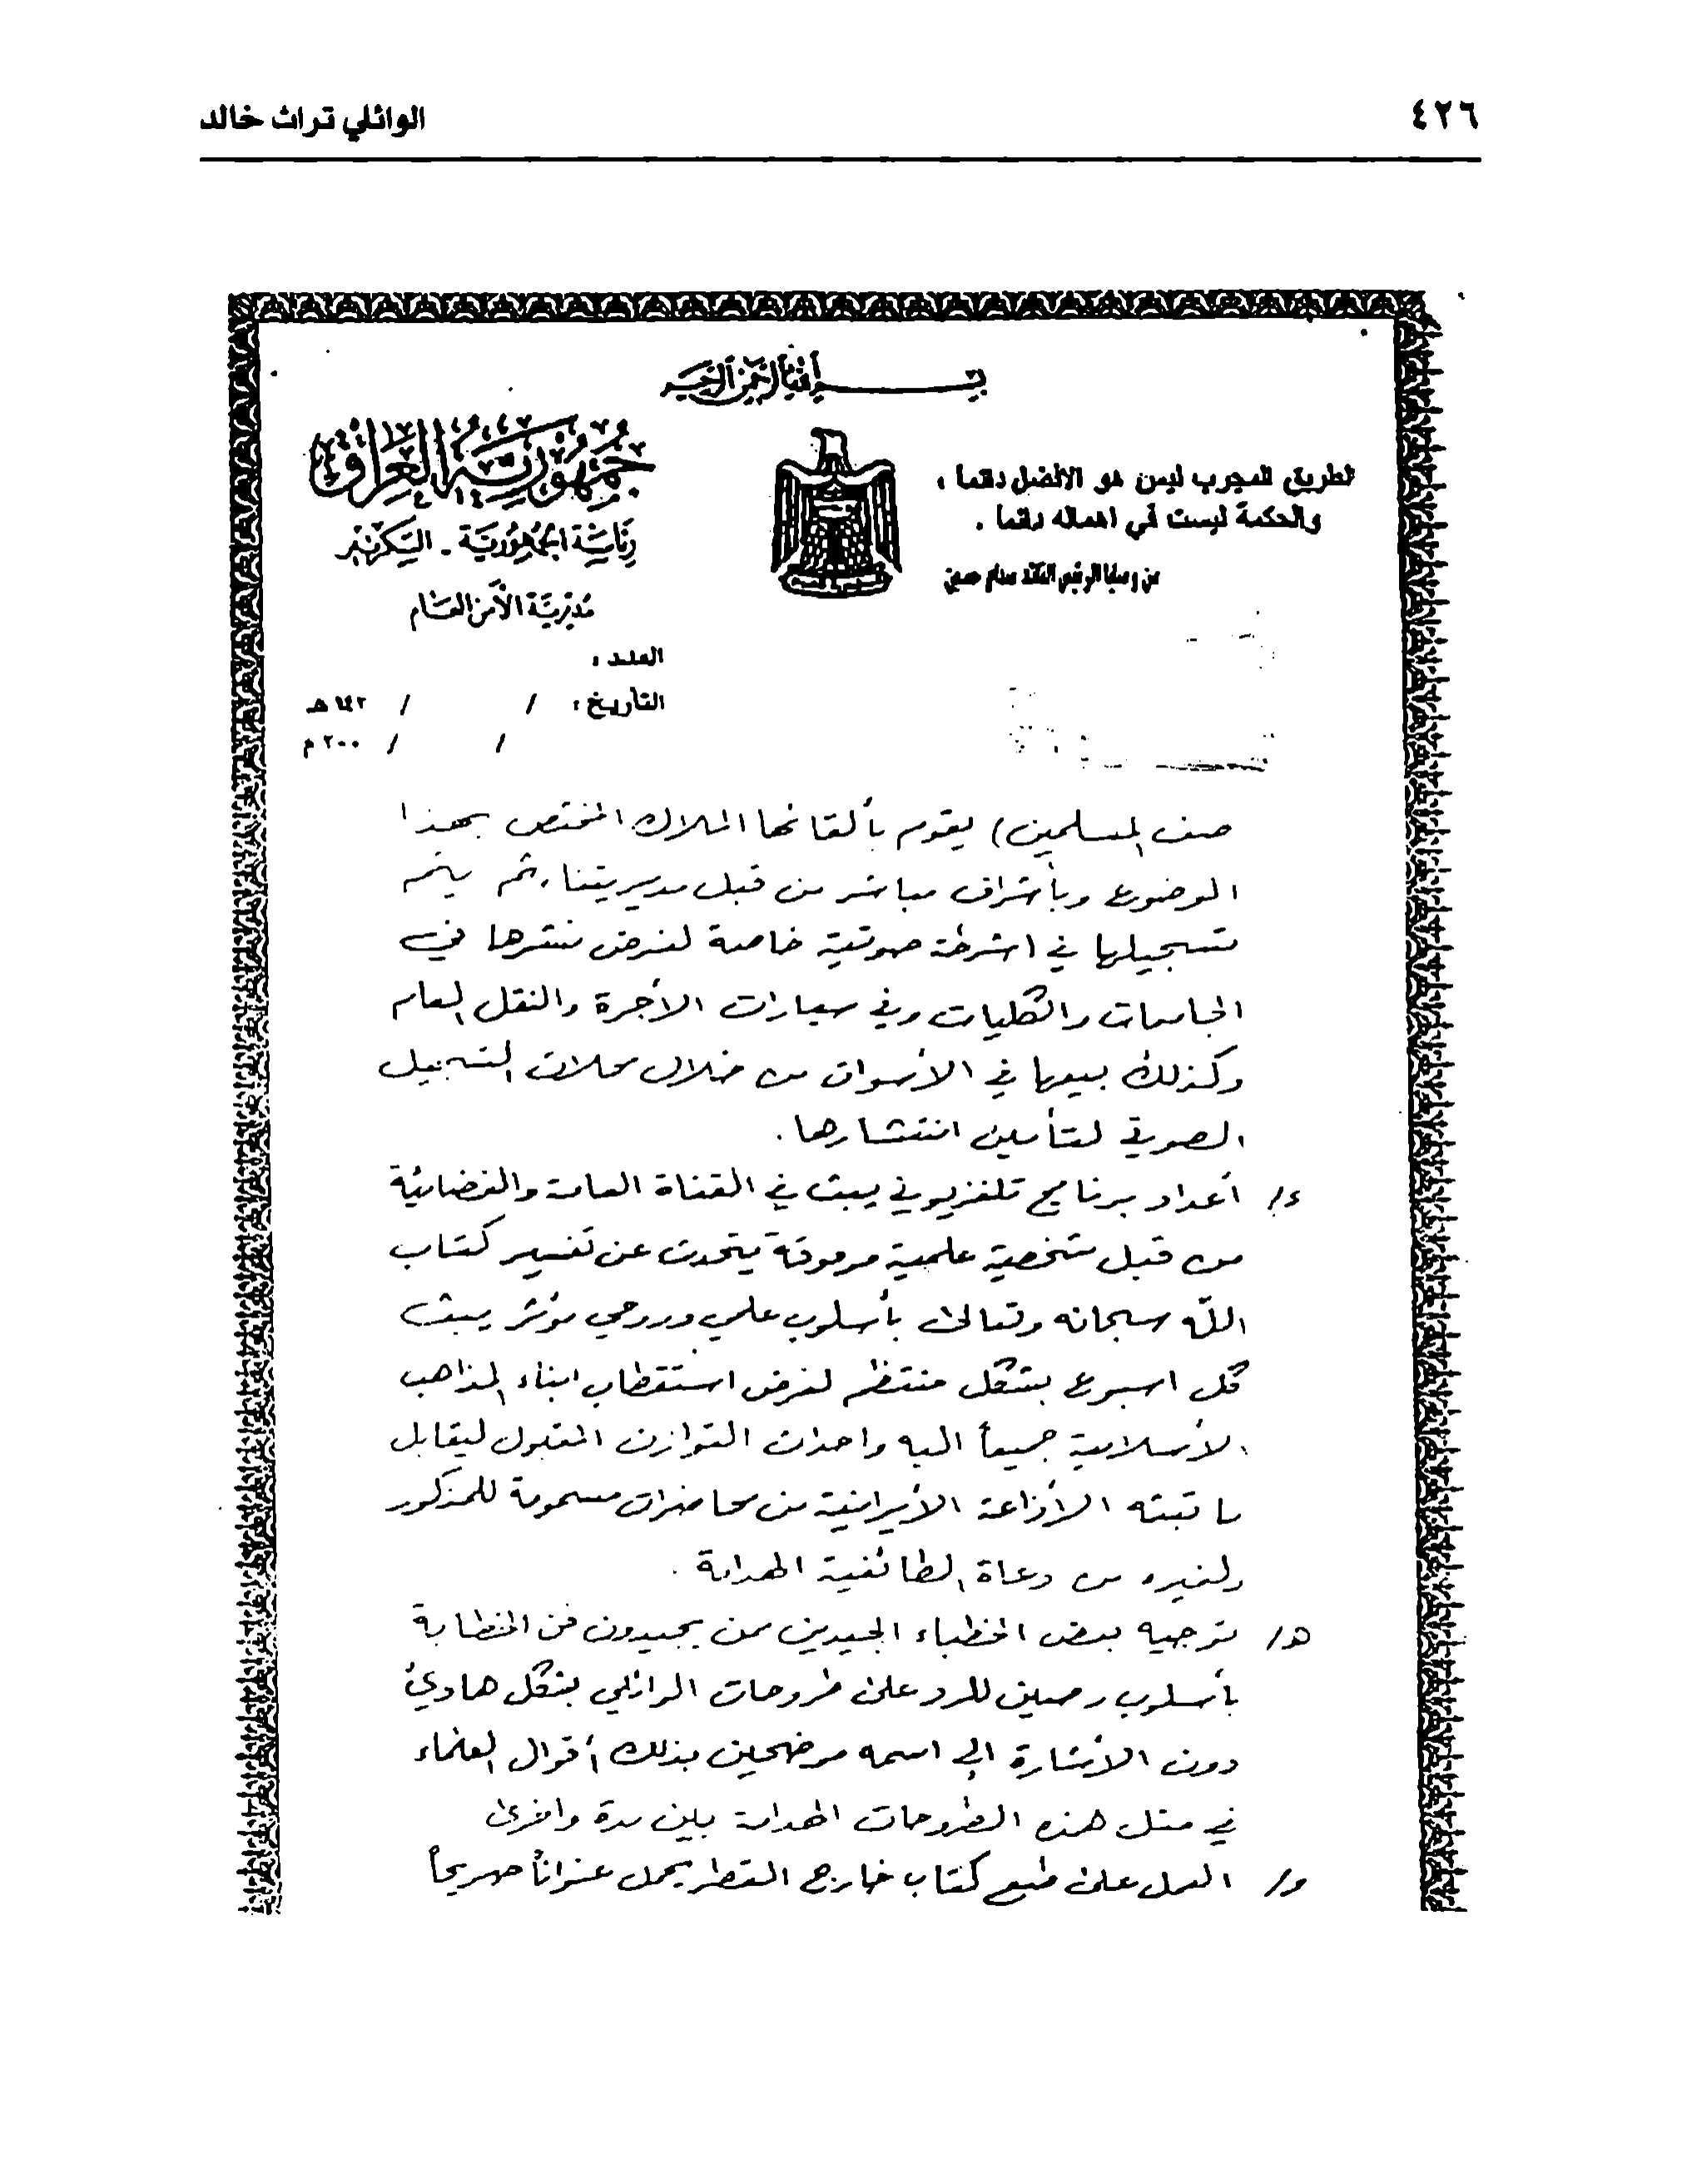 ٤٢٦
الوائلي تراث خالد
بسم الله الرحمن الرحيم
جمهورية العراق
رئاسة الجمهورية - السكرتير
مديرية الأمن العام
الطريق المجرب ليس هو الافضل دائما ،
والحكمة ليست في اهماله دائما .
من وصايا الرئيس القائد صدام حسين
العدد :
التاريخ : / / ١٤٢ هـ
/ / ٢٠٠ م
صف المسلمين) يقوم بألقائها الملاك المختص بهذا
الموضوع وبأشراف مباشر من قبل مديريتنا ، ثم يتم
تسجيلها في اشرطة صوتية خاصة لغرض نشرها في
الجامعات والكليات وفي سيارات الأجرة والنقل العام
وكذلك بيعها في الأسواق من خلال محلات التسجيل
الصوتي لتأمين انتشارها .
ء/ أعداد برنامج تلفزيوني يبث في القناة العامة والفضائية
من قبل شخصية علمية مرموقة يتحدث عن تفسير كتاب
الله سبحانه وتعالى بأسلوب علمي وروحي مؤثر يبث
كل اسبوع بشكل منتظم لغرض استقطاب ابناء المذاهب
الأسلامية جميعاً اليه واحداث التوازن المقبول ليقابل
ما تبثه الأذاعة الأيرانية من محاضرات مسمومة للمذكور
ولغيره من دعاة الطائفية الهدامة .
هـ/ توجيه بعض الخطباء الجيدين ممن يجيدون فن الخطابة
بأسلوب رصين للرد على طروحات الوائلي بشكل هادئ
دون الأشارة الى اسمه موضحين بذلك أقوال العلماء
في مثل هذه الطروحات الهدامة بين مدة واخرى
و/ العمل على طبع كتاب خارج القطر يحمل عنواناً صريحاً